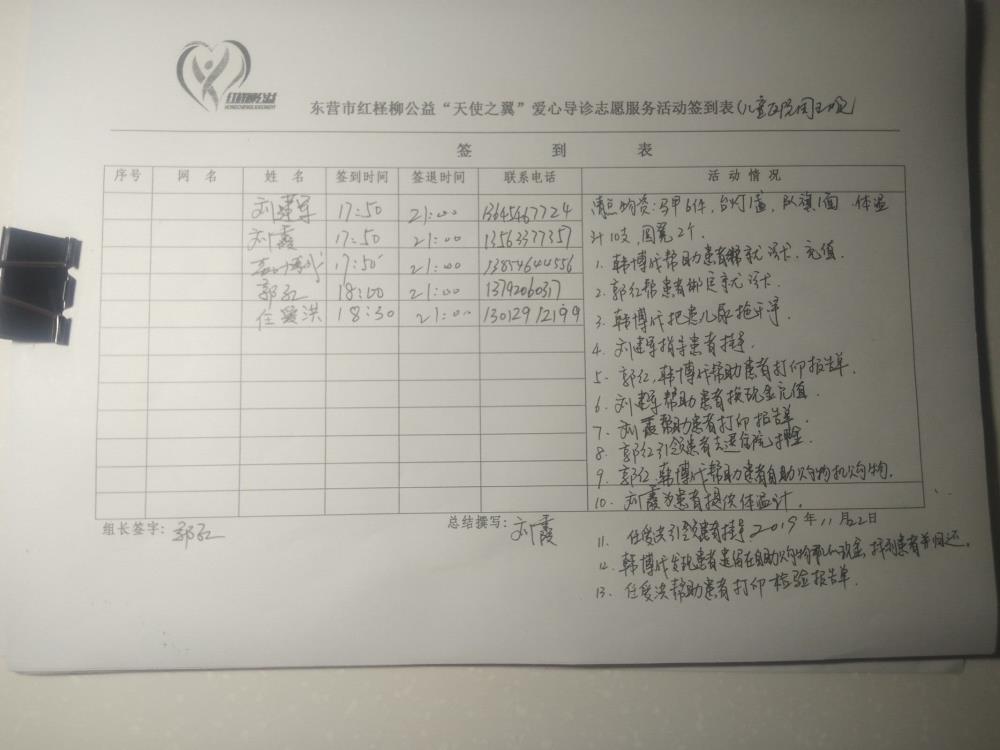 红柽柳公益
东营市红柽柳公益“天使之翼”爱心导诊志愿服务活动签到表(儿童医院周五晚)
签 到 表
序号 网 名 姓 名 签到时间 签退时间 联系电话 活 动 情 况
刘建军 17:50 21:00 13645467724
刘霞 17:50 21:00 13563377357
17:50 21:00 13854644556
郭红 18:00 21:00 1379206037
任爱洪 18:30 21:00 13012912199
清点物资:马甲6件,台灯1盏,队旗1面 体温
计10支,围裙2个.
1. 韩博代帮助患者办就诊卡,充值.
2. 郭红帮患者绑定就诊卡
3. 韩博代把患儿尿拖干净
4. 刘建军指导患者挂号.
5. 郭红,韩博代帮助患者打印报告单.
6. 刘建军帮助患者换现金充值.
7. 刘霞帮助患者打印报告单
8. 郭红引领患者去退住院押金.
9. 郭红.韩博代帮助患者自助购物机购物.
10. 刘霞为患者提供体温计.
组长签字:郭红
总结撰写:刘霞
2019年11月22日
11. 任爱洪引领患者挂号
12. 韩博代发现患者遗留在自助购物机的现金,找到患者并归还.
13. 任爱洪帮助患者打印检验报告单.